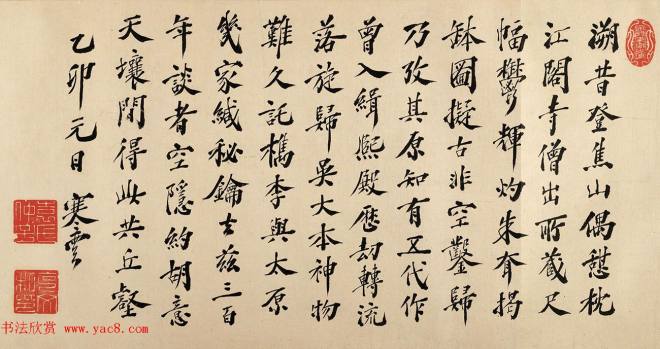 溯昔登焦山偶憇枕
江閣寺僧出所藏尺
幅欝輝灼朱脊揭
缽圖擬古非空鑿歸
乃攷其原知有五代作
曾入緝熙殿歷劫轉流
落旋歸吳大本神物
難久託檇李與太原
幾家緘秘鑰去茲三百
年談者空隱約胡意
天壤間得此共丘壑
乙卯元日寒雲
书法欣赏 www.yac8.com